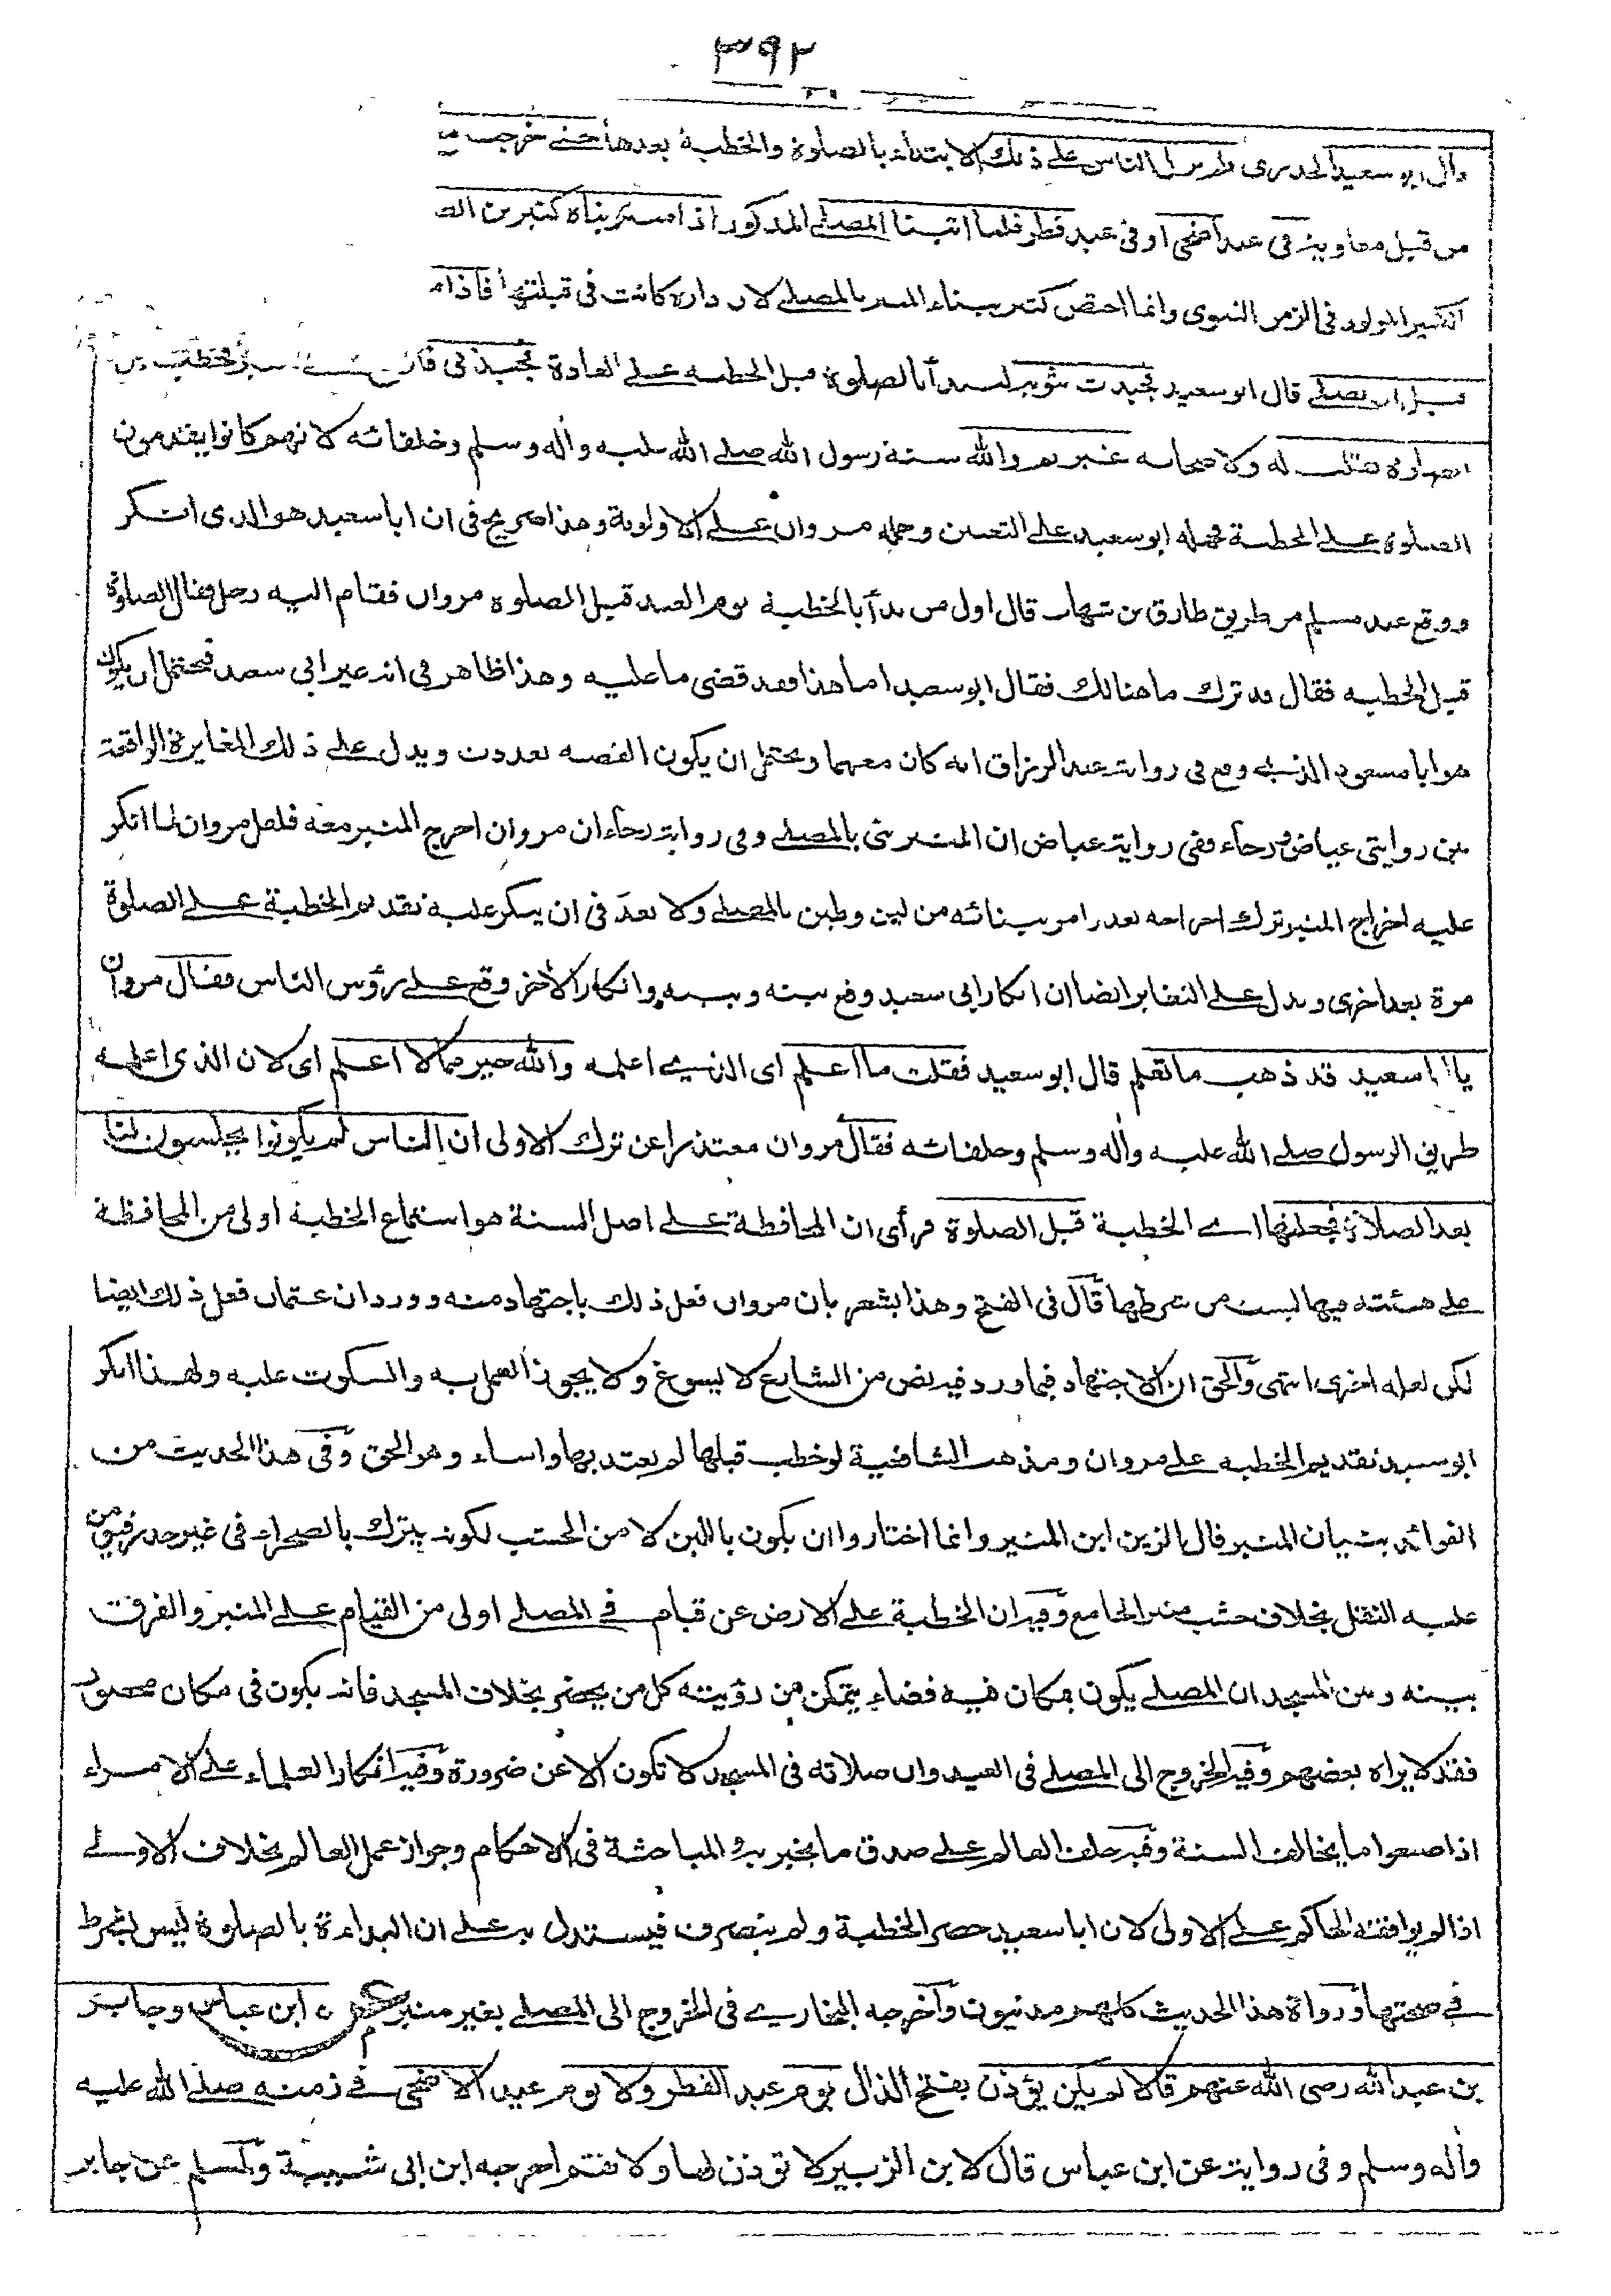 ٣٩٢
قال ابو سعيد الخدرى فلم يزل الناس على ذلك الابتداء بالصلوة والخطبة بعدها حتى خرجت
من قبل معاوية فى عيد اضحى او فى عيد فطر فلما اتينا المصلى المذكور اذا منبر بناه كثير بن الص
الكبير المولود فى الزمن النبوى وانما اختص كثير ببناء المنبر بالمصلى لان داره كانت فى قبلتها فاذا
قبل ان يصلى قال ابو سعيد فجبذت بثوبه ليبدأ بالصلوة قبل الخطبة على العادة فجبذنى فخطب
الصلوة فقلت له ولاصحابه غيرتم والله سنة رسول الله صلى الله عليه وأله وسلم وخلفائه لانهم كانوا يقدمون
الصلوة على الخطبة فحمله ابو سعيد على التعيين وحمله مروان على الاولوية وهذا صريح فى ان ابا سعيد هو الذى انكر
ووقع عند مسلم من طريق طارق بن شهاب قال اول من بدأ بالخطبة يوم العيد قبل الصلوة مروان فقام اليه رجل فقال الصلوة
قبل الخطبة فقال قد ترك ما هنالك فقال ابو سعيد اما هذا فقد قضى ما عليه وهذا ظاهر فى انه غير ابى سعيد فيحتمل ان يكون
هو ابا مسعود الذى وقع فى رواية عبد الرزاق انه كان معهما ويحتمل ان يكون القصه تعددت ويدل على ذلك المغايرة الواقعة
بين روايتى عياض ورجاء ففى رواية عياض ان المنبر بنى بالمصلى وفى رواية رجاء ان مروان اخرج المنبر معه فلعل مروان لما انكر
عليه اخراج المنبر ترك اخراجه بعد وامر ببنائه من لبن وطين بالمصلى ولا بعد فى ان ينكر عليه تقديم الخطبة على الصلوة
مرة بعد اخرى ويدل على التغاير ايضا ان انكار ابى سعيد وقع بينه وبينه وانكار الأخر وقع على رؤس الناس فقال مروان
يا ابا سعيد قد ذهب ما تعلم قال ابو سعيد فقلت ما اعلم اى الذى اعلمه والله خير مما لا اعلم اى لان الذى اعلمه
طريق الرسول صلى الله عليه وأله وسلم وخلفائه فقال مروان معتذرا عن ترك الاولى ان الناس لم يكونوا يجلسون لنا
بعد الصلاة فجعلتها اى الخطبة قبل الصلوة فرأى ان المحافظة على اصل السنة هو استماع الخطبة اولى من المحافظة
على هيئته فيها ليست من شرطها قال فى الفتح وهذا يشعر بان مروان فعل ذلك باجتهاد منه وورد ان عثمان فعل ذلك ايضا
لكن لعلة اخرى انتهى والحق ان الاجتهاد فيما ورد فيه نص من الشارع لا يسوغ ولا يجوز العمل به والسكوت عليه ولهذا انكر
ابو سعيد تقديم الخطبه على مروان ومذهب الشافعية لو خطب قبلها لم يعتد بها واساء وهو الحق وفى هذا الحديث من
الفوائد بنيان المنبر قال الزين ابن المنير وانما اختاروا ان يكون باللبن لا من الخشب لكونه يترك بالصحراء فى غير حرز فيؤمن
عليه النقل بخلاف خشب منبر الجامع وفيه ان الخطبة على الارض عن قيام فى المصلى اولى من القيام على المنبر والفرق
بينه وبين المسجد ان المصلى يكون بمكان فيه فضاء يتمكن من رؤيته كل من يحضر بخلاف المسجد فانه يكون فى مكان محصور
فقد لا يراه بعضهم وفيه الخروج الى المصلى فى العيد وان صلاته فى المسجد لا تكون الا عن ضرورة وفيه انكار العلماء على الامراء
اذا صنعوا ما يخالف السنة وفيه حلف العالم على صدق ما يخبر به والمباحثة فى الاحكام وجواز عمل العالم بخلاف الاولى
اذا لم يوافقه الحاكم على الاولى لان ابا سعيد حضر الخطبة ولم ينصرف فيستدل به على ان البداءة بالصلوة ليس بشرط
فى صحتها ورواة هذا الحديث كلهم مدنيون وأخرجه البخارى فى الخروج الى المصلى بغير منبر عن ابن عباس وجابر
بن عبد الله رضى الله عنهم قالا لم يكن يؤذن بفتح الذال يوم عيد الفطر ولا يوم عيد الاضحى فى زمنه صلى الله عليه
وأله وسلم وفى رواية عن ابن عباس قال لابن الزبير لا تؤذن لها ولا تقم اخرجه ابن ابى شيبة ولمسلم عن جابر